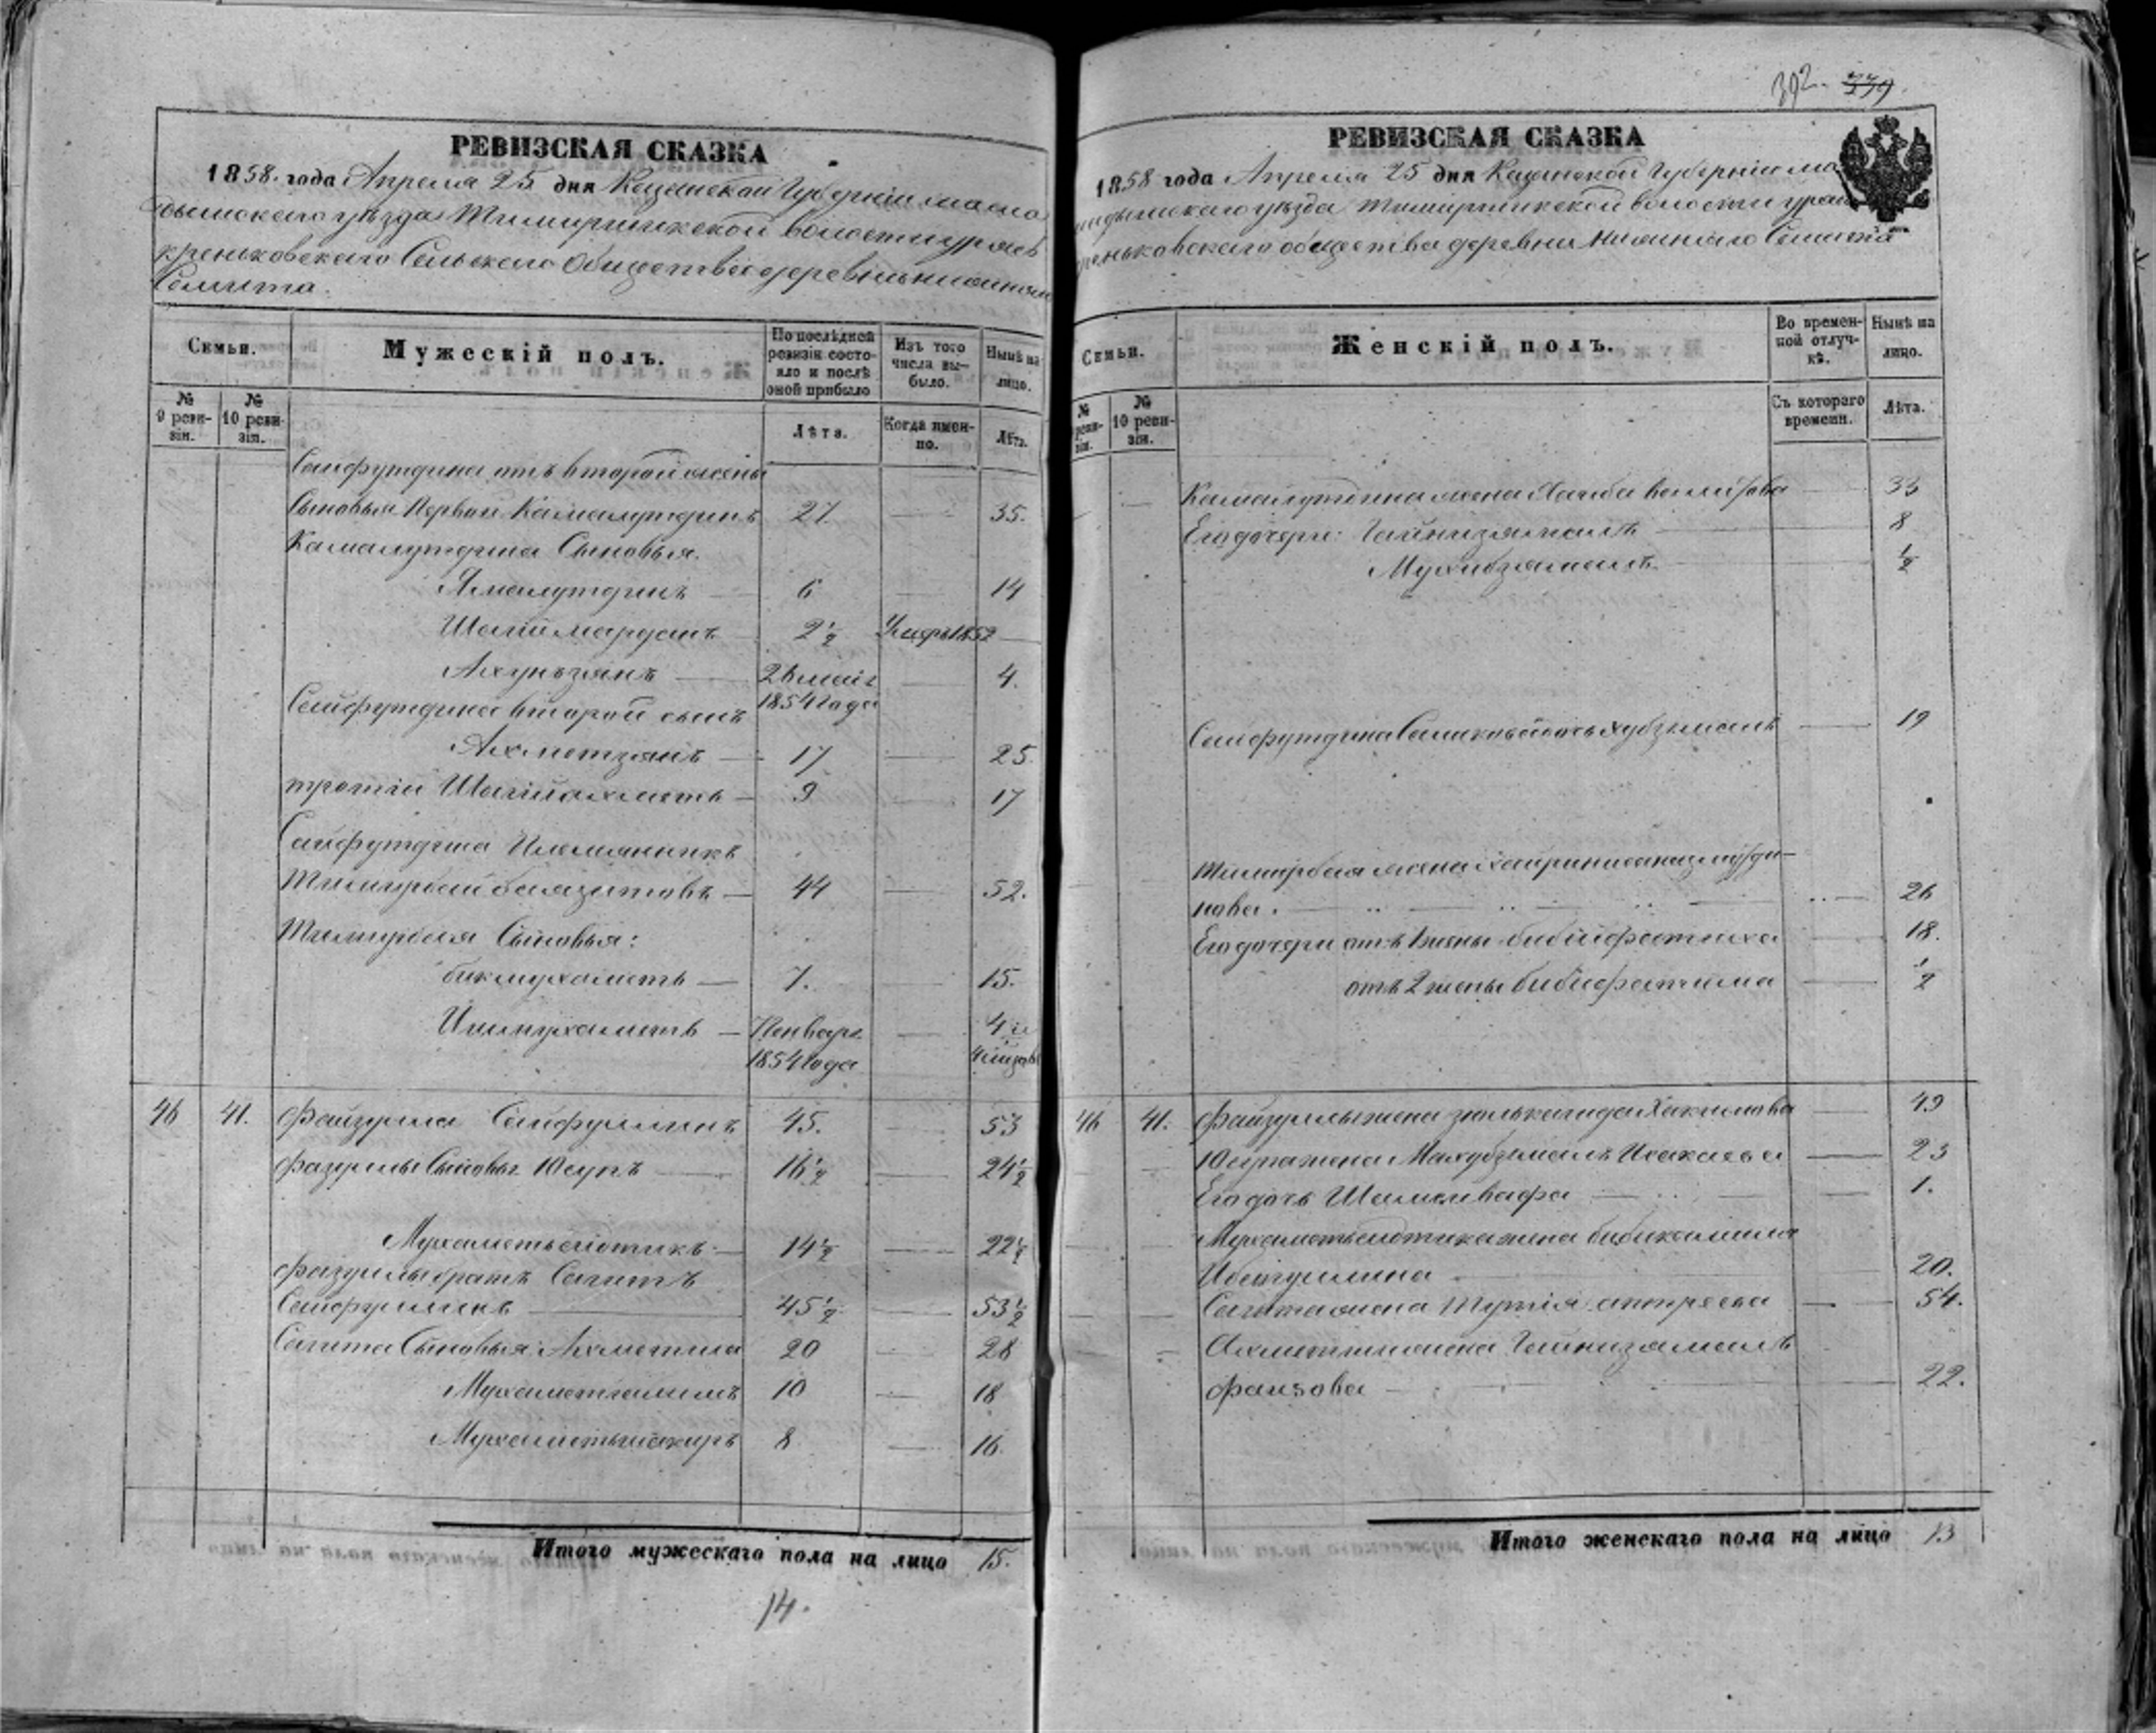 РЕВИЗСКАЯ СКАЗКА
1858 года Апреля 25 дня Казанской Губернiи мама
дышского уѣзда Тимиршинской волости
Сельскаго Общества деревни нижняго
Семита.
Семьи.
Мужескiй полъ.
По послѣдней ревизiи состояло и послѣ оной прибыло
Изъ того числа выбыло.
Нынѣ на лицо.
№ 9 ревизiи.
№ 10 ревизiи.
Лѣта.
Когда именно.
Лѣта.
Сайфутдина отъ второй жены
Сыновья Первой Камалутдинъ 27. 35.
Камалутдина Сыновья.
Ямалутдинъ 6 14
Шагiмарданъ 2½ Умеръ 1852
Ахунзянъ 26 маiя 4.
1854 года
Сайфутдина второй сынъ
Ахметзянъ 17 25.
третiй Шагiйахметъ 9 17
Сайфутдина Племянникъ
Тимирбай баязитовъ 44 52.
Тимирбая Сыновья:
бикмухаметъ 7. 15.
Ишмухаметъ Генваря 4 и
1854 года
46 41. Файзулла Сайфуллинъ 45. 53
Фазуллы Сыновья Юсупъ 16½ 24½
Мухаметьсадыкъ 14½ 22½
Фазуллы братъ Сагитъ
Сайфуллинъ 45½ 53½
Сагита Сыновья: Ахметша 20 28
Мухаметгалимъ 10 18
Мухаметшакиръ 8 16.
Итого мужескаго пола на лицо 15.
14.
392. 339.
РЕВИЗСКАЯ СКАЗКА
1858 года Апреля 25 дня Казанской Губернiи ма
мадышскаго уѣзда Тимиршинской волости
общества деревни Нижняго Семита
Семьи.
Женскiй полъ.
Во временной отлучкѣ.
Нынѣ на лицо.
№ ревизiи.
№ 10 ревизiи.
Съ котораго времени.
Лѣта.
Камалутдина жена 33
Его дочери: Гайнизямалъ 8
Мухибзямалъ ½
Сайфутдина 19
Тимирбая жена Хайриниса
нова. 26
Его дочери отъ 1 жены бибифатиха 18.
отъ 2 жены бибифатима ½
46 41. Файзуллы жена Хакимова 49
Юсупа жена Махубзямалъ Исакаева 23
Его дочь Шамсивафа 1.
Мухаметьсадыка жена бибикамиля
20.
Сагита жена 54.
Ахметши жена Гайнизямалъ
фаизова 22.
Итого женскаго пола на лицо 13